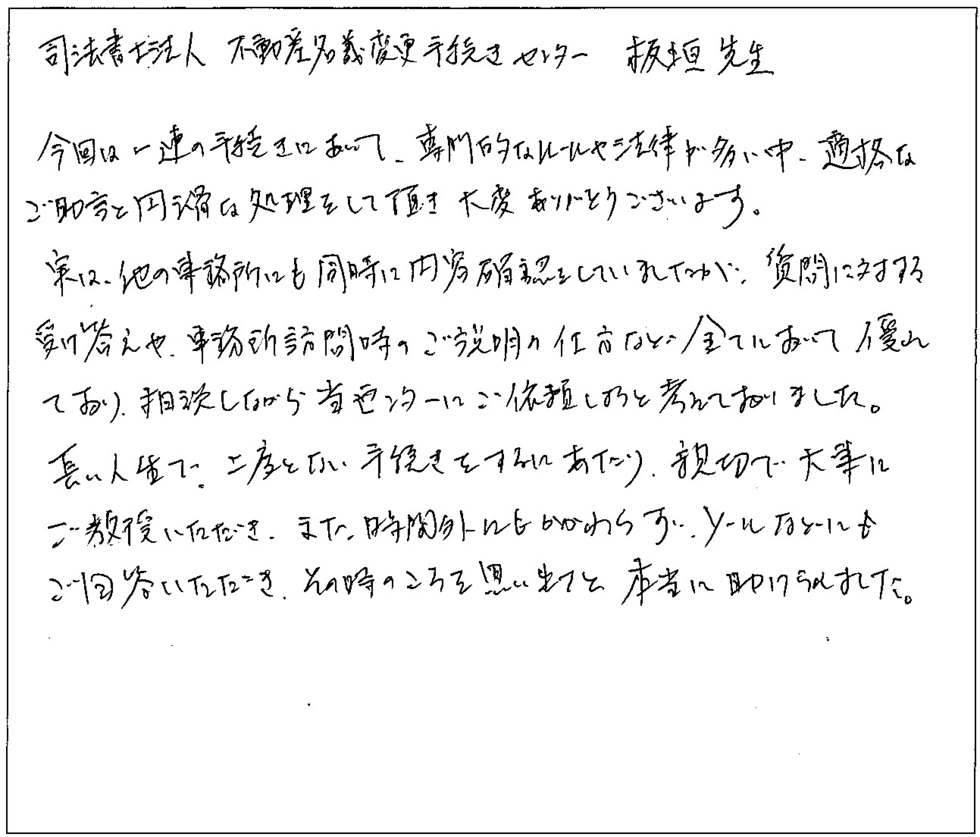 司法書士法人 不動産名義変更手続きセンター 板垣先生
今回は一連の手続きにおいて、専門的なルールや法律が多い中、適格な
ご助言と円滑な処理をして頂き大変ありがとうございます。
実は、他の事務所にも同時に内容確認をしていましたが、質問に対する
受け答えや、事務所訪問時のご説明の仕方など全てにおいて優れ
ており、相談しながら当センターにご依頼しようと考えておりました。
長い人生で、二度とない手続きをするにあたり、親切で大事に
ご教授いただき、また、時間外にもかかわらず、メールなどにも
ご回答いただき、その時のころを思い出すと本当に助けられました。